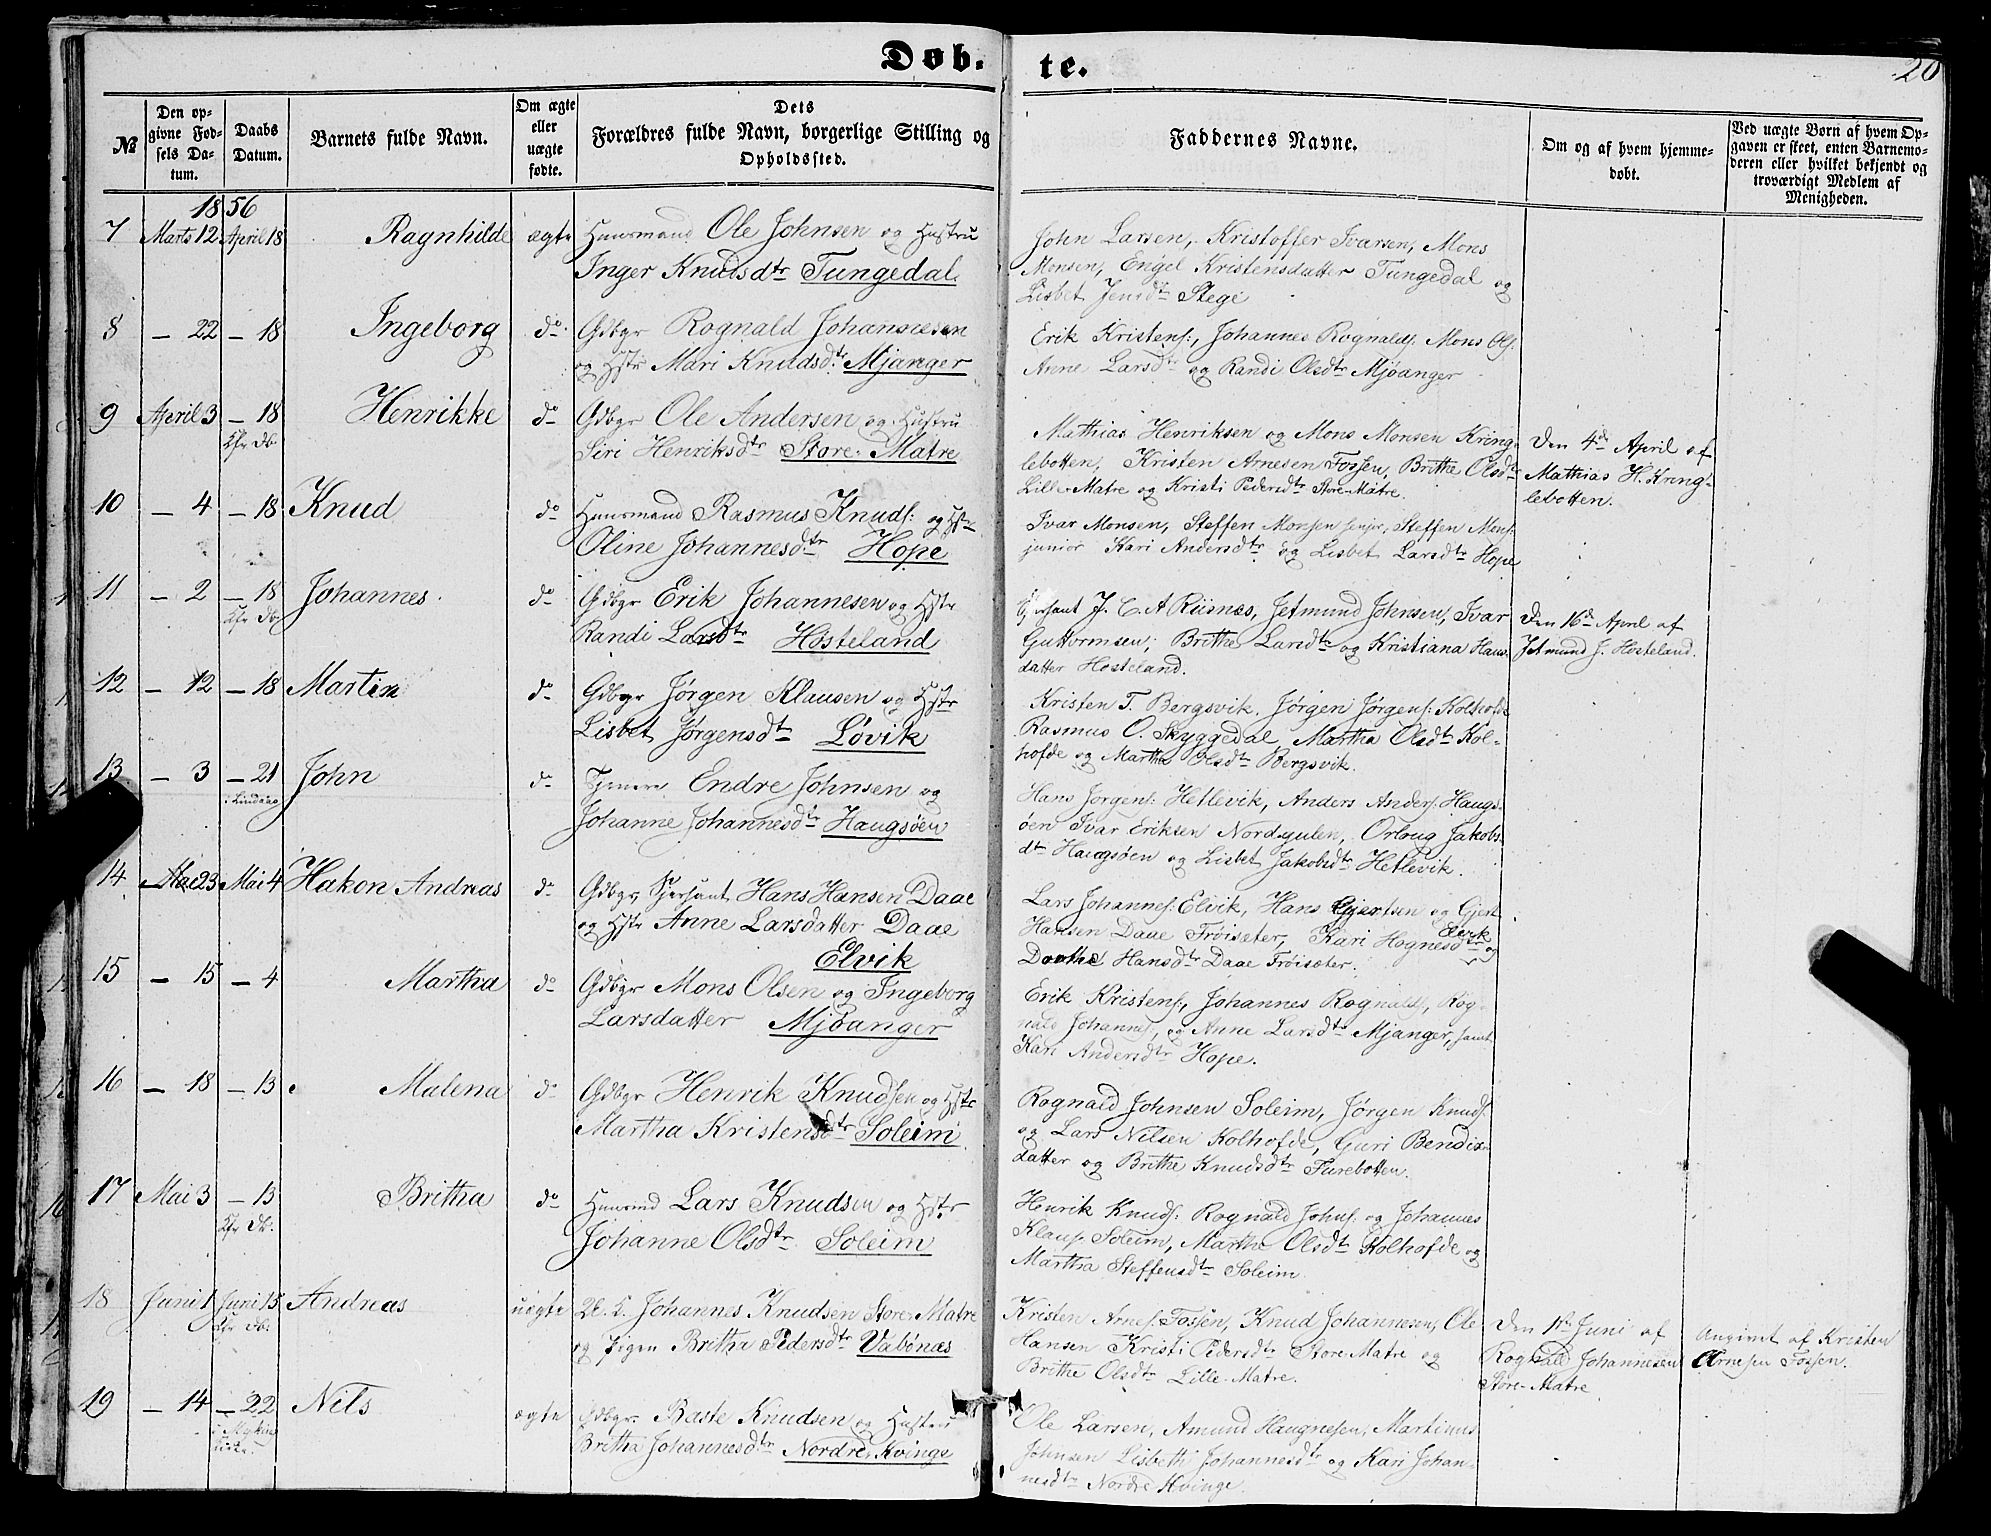 Døb- te. 20
№
Den op-
givne Fød-
sels Da-
tum.
Daabs
Datum.
Barnets fulde Navn.
Om ægte
eller
uægte
fødte.
Dets
Forældres fulde Navn, borgerlige Stilling og
Opholdssted.
Faddernes Navne.
Om og af hvem hjemme-
døbt.
Ved uægte Børn af hvem Op-
gaven er skeet, enten Barnemo-
deren eller hvilket bekjendt og
troværdigt Medlem af
Menigheden.
1856
7 Marts 12 April 18 Ragnhilde ægte Huusmand Ole Johnsen og Hustru
Inger Knudsdtr Tungedal.
John Larsen, Kristoffer Ivarsen, Mons
Monsen, Engel Kristensdatter Tungedal og
Lisbet Jensdtr Stege
8 — 22 — 18 Ingeborg do Gdbgr Rognald Johannesen
og Hstr Mari Knudsd: Mjanger
Erik Kristens:, Johannes Rognalds. Mons Ols:
Anne Larsdtr og Randi Olsdtr Mjøanger
9 April 3 — 18 Henrikke do Gdbgr Ole Andersen og Hustru
Siri Henriksdtr Store-Matre
Mathias Henriksen og Mons Monsen Kring-
lebotten, Kristen Arnesen Fossen, Brithe Olsdtr
Lille-Matre og Kristi Pedersdtr Store-Matre.
Den 4de April af
Mathias H. Kring-
lebotten.
10 — 4 — 18 Knud do Huusmand Rasmus Knuds: og Hstr
Oline Johannesdtr Hope
Ivar Monsen, Steffen Monsen senior, Steffen Mons:
junior Kari Andersdtr og Lisbet Larsdtr Hope
11 — 2 — 18 Johannes do Gdbgr Erik Johannesen og Hstr
Randi Larsdtr Hosteland
J. C. A Riisnes, Jetmund Johnsen, Ivar
Guttormsen, Brithe Larsdtr og Kristiana Hans-
datter Hosteland.
Den 16de April af
Jetmund J. Hosteland.
12 — 12 — 18 Martin do Gdbgr Jørgen Klausen og Hstr
Lisbet Jørgensdtr Løvik
Kristen T. Bergsvik, Jørgen Jørgens: Kolhofde
Rasmus O. Skyggedal, Martha Olsdtr Kol-
hofde og Martha Olsdtr Bergsvik.
13 — 3 — 21 John do Tjenere Endre Johnsen og
i Lindaas
Johanne Johannesdtr Haugsøen
Hans Jørgens: Hetlevik, Anders Anders: Haugs-
øen Ivar Eriksen Nordgulen, Orloug Jakobs-
dtr Haugsøen og Lisbet Jakobsdtr Hetlevik.
14 — 23 Mai 4 Hakon Andreas do Gdbgr, Sjersant Hans Hansen Daae
og Hstr Anne Larsdatter Daae
Elvik
Lars Johannes: Elvik, Hans Gjertsen og Gjert
Hansen Daae Frøisæter, Kari Hognesdtr Elvik og
Dorthe Hansdtr Daae Frøisæter.
15 — 15 — 4 Martha do Gdbgr Mons Olsen og Ingeborg
Larsdatter Mjøanger
Erik Kristens:, Johannes Rognalds, Rog-
nald Johannes:, og Anne Larsdtr Mjanger, samt
Kari Andersdtr Hope.
16 — 18 — 13 Malena do Gdbgr Henrik Knudsen og Hstr
Martha Kristensdtr Soleim
Rognald Johnsen Soleim, Jørgen Knuds:
og Lars Nilsen Kolhofde, Guri Bendix-
datter og Brithe Knudsdtr Furebotten.
17 Mai 3 — 13 Britha do Huusmd Lars Knudsen og Hstr
Johanne Olsdtr Soleim
Henrik Knuds: Rognald Johns: og Johannes
Klaus: Soleim, Marthe Olsdtr Kolhofde og
Martha Steffensdtr Soleim
18 Juni 1 Juni 15 Andreas uægte Johannes Knudsen Store-Matre
og Pigen Britha Pedersdtr Vabønæs
Kristen Arnes: Fossen, Knud Johannesen, Ole
Hansen Kristi Pedersdtr Store-Matre og
Brithe Olsdtr Lille-Matre.
Den 1ste Juni af
Rognald Johannesen
Store-Matre
Angivet af Kristen
Arnesen Fossen.
19 — 14 — 22 Nils ægte Gdbgr. Baste Knudsen og Hustru
Britha Johannesdtr Nordre-Kvinge
Ole Larsen, Amund Haugnesen, Martinus
Johnsen Lisbeth Johannesdtr og Kari Johan-
nesdtr Nordre Kvinge.